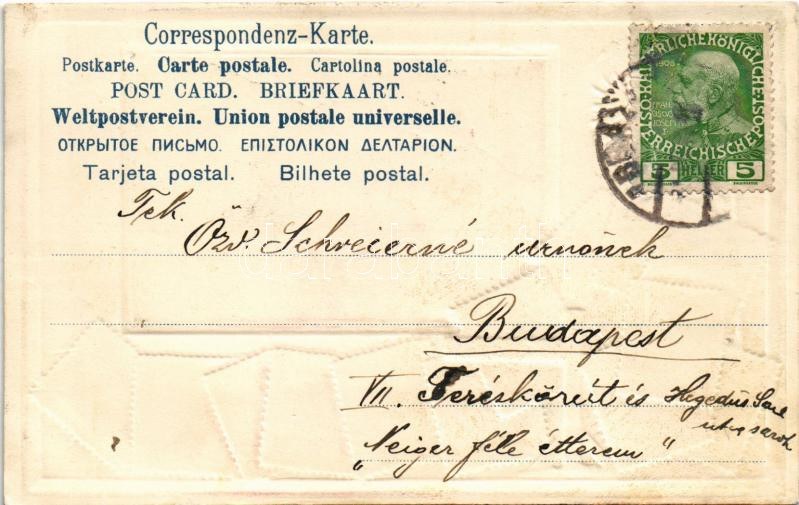 Correspondenz-Karte.
Postkarte. Carte postale. Cartolina postale.
POST CARD. BRIEFKAART.
Weltpostverein. Union postale universelle.
ОТКРЫТОЕ ПИСЬМО. ΕΠΙΣΤΟΛΙΚΟΝ ΔΕΛΤΑΡΙΟΝ.
Tarjeta postal. Bilhete postal.
KAISERLICHE KÖNIGLICHE
ÖSTERREICHISCHE POST
1908
5 HELLER 5
Tek.
Özv. Schreierné urnőnek
Budapest
VII. Teréskörút és Hegedüs Sari
utca sarok
„Neiger féle étterem"